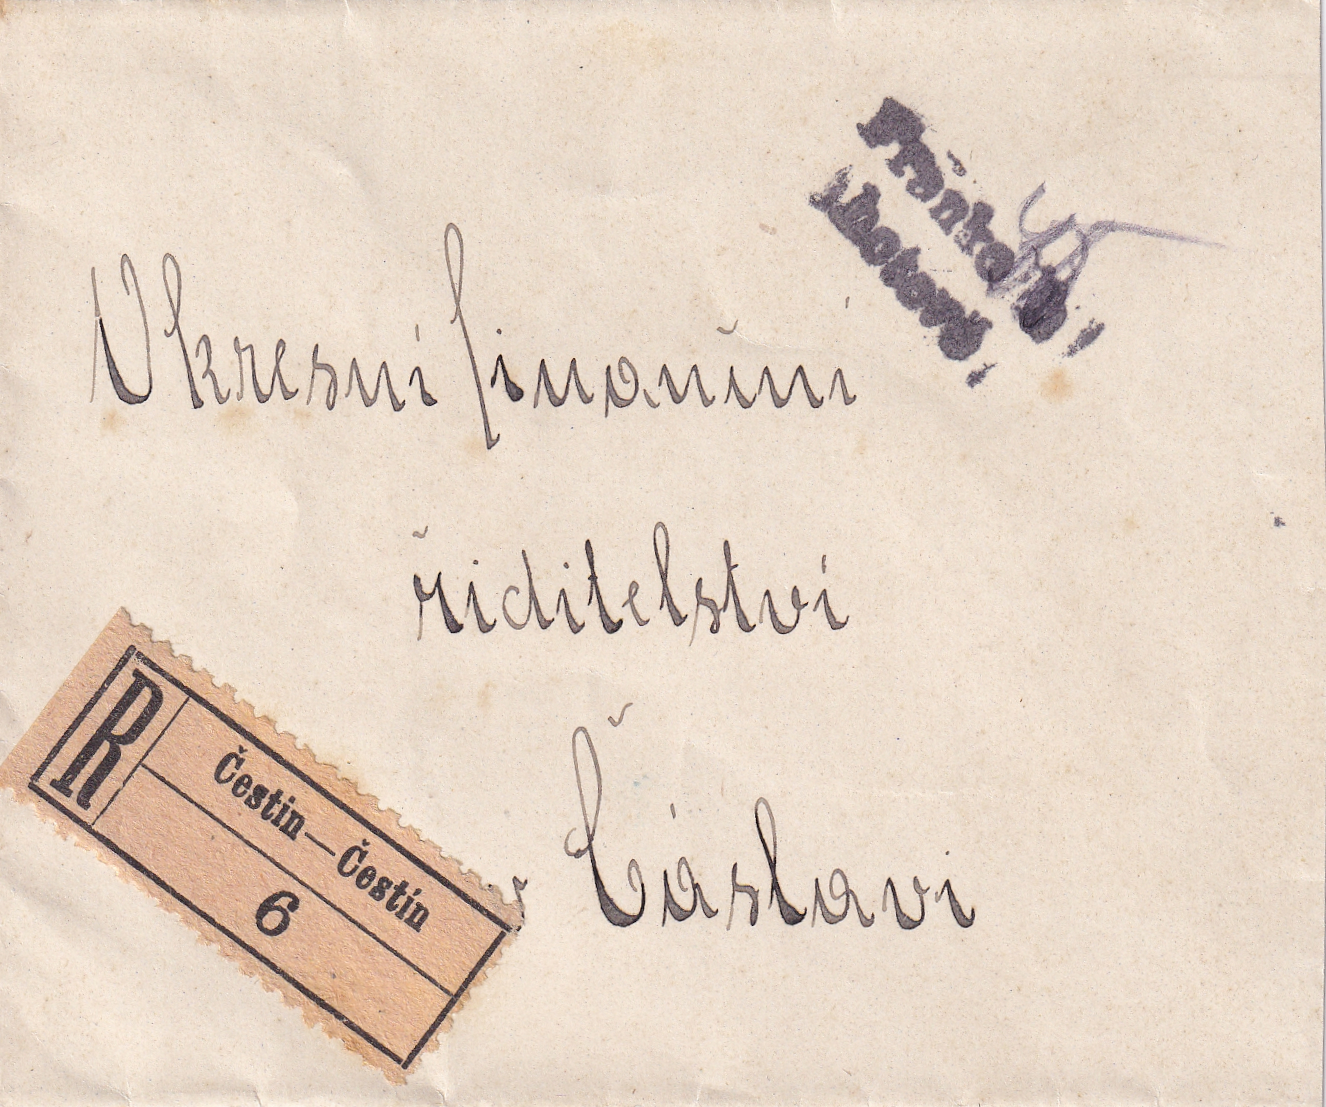 hotově.
Okresní finanční
řiditelství
v Čáslavi
R
Čestin—Čestín
6